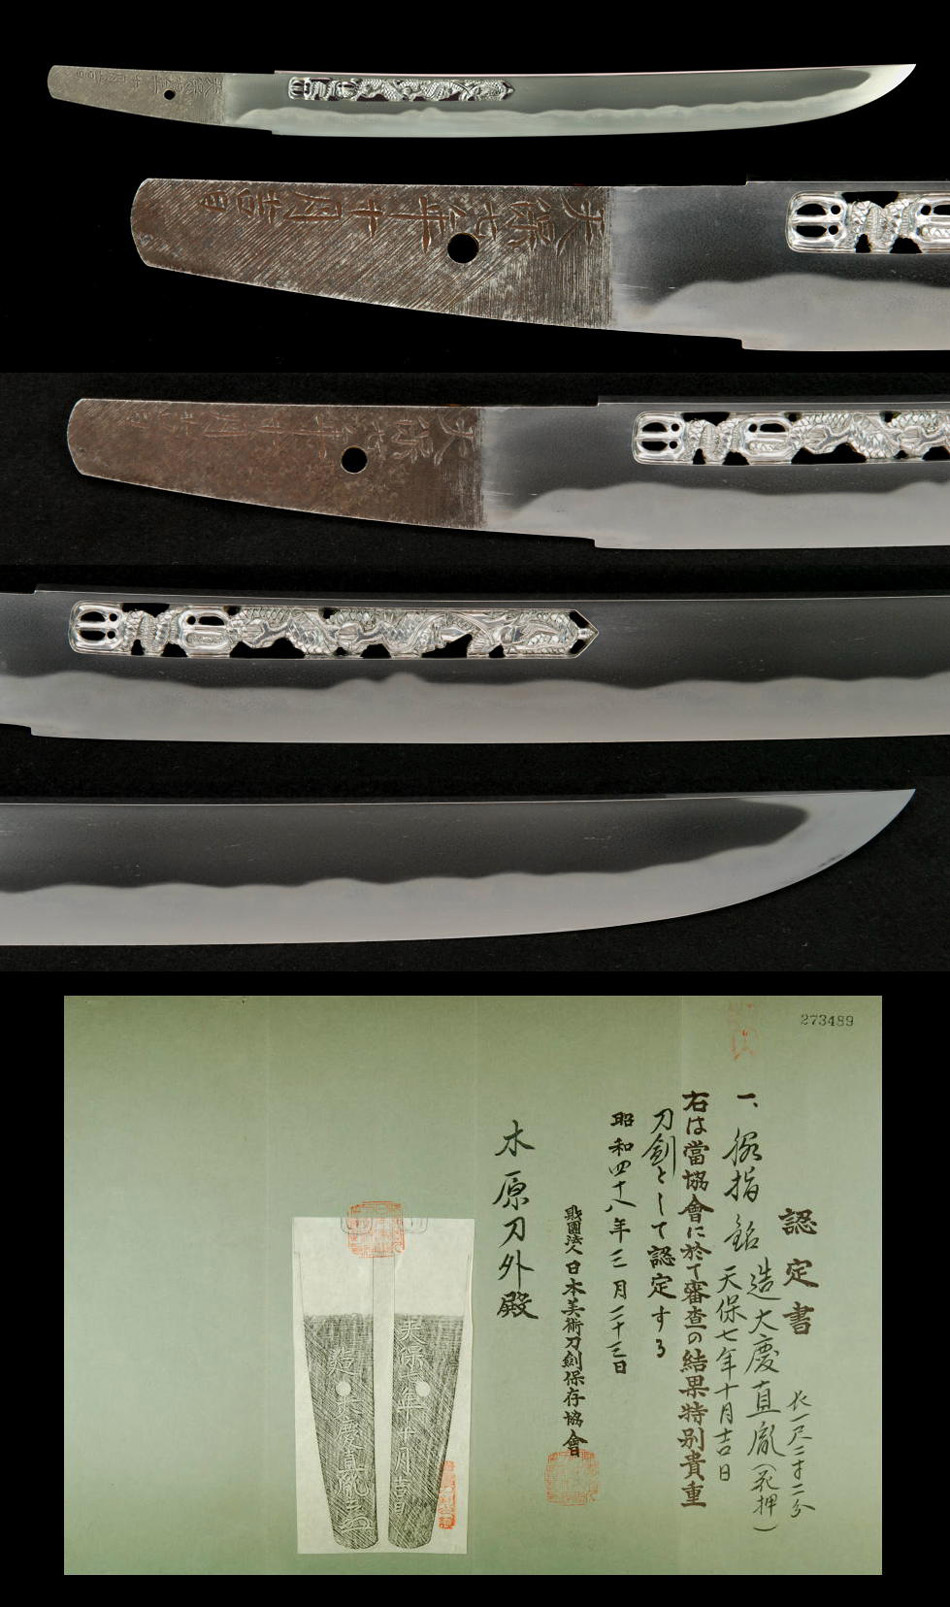 天保七年十月吉日
天保七年十月
273489
認定書
長一尺二寸二分
一、脇指 銘 造大慶直胤(花押)
天保七年十月吉日
右は當協會に於て審査の結果特別貴重
刀劍として認定する
昭和四十八年三月二十三日
財團法人日本美術刀劍保存協會
木原刀外殿
天保七年十月吉日
造大慶直胤